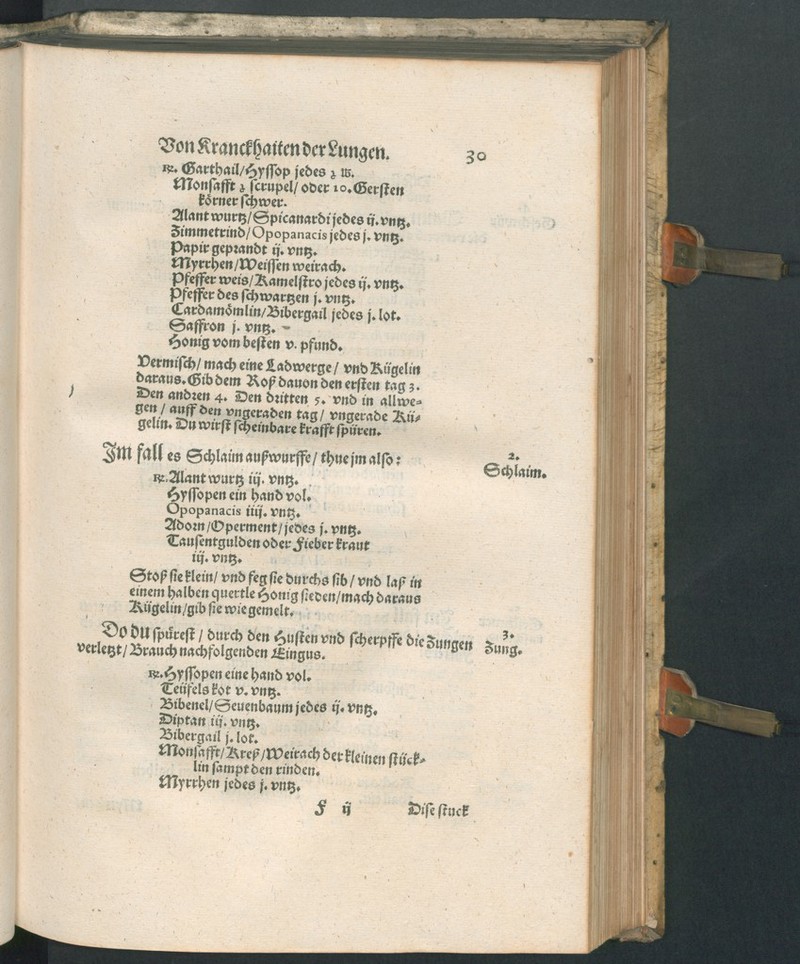 Von Kranckhaiten der Lungen. 30
℞. Garthail/Hyssop jedes ʒ lb.
Monsafft ʒ scrupel/ oder 10. Gersten
körner schwer.
Alant wurtz/Spicanardi jedes ij. vntz.
Zimmetrind/Opopanacis jedes j. vntz.
Papir geprandt ij. vntz.
Myrrhen/Weissen weirach.
Pfeffer weis/Kamelstro jedes ij. vntz.
Pfeffer des schwartzen j. vntz.
Cardamömlin/Bibergail jedes j. lot.
Saffron j. vntz.
Honig vom besten v. pfund.
Vermisch/ mach eine Ladwerge/ vnd Kügelin
daraus. Gib dem Roß dauon den ersten tag 3.
Den andren 4. Den dritten 5. vnd in allwe-
gen/ auff den vngeraden tag/ vngerade Kü-
gelin. Du wirst scheinbare krafft spüren.
Im fall es Schlaim außwurffe/ thue jm also:
2.
Schlaim.
℞. Alant wurtz iij. vntz.
Hyssopen ein hand vol.
Opopanacis iiij. vntz.
Adorn/Operment/jedes j. vntz.
Tausentgulden oder Fieber kraut
iij. vntz.
Stoß sie klein/ vnd feg sie durchs sib/ vnd laß in
einem halben quertle Honig sieden/mach daraus
Kügelin/gib sie wie gemelt.
Do du spürest/ durch den Husten vnd scherpffe die Zungen
verletzt/ Brauch nachfolgenden Eingus.
3.
Zung.
℞. Hyssopen eine hand vol.
Teüfels kot v. vntz.
Bibenel/Seuenbaum jedes ij. vntz.
Diptan iij. vntz.
Bibergail j. lot.
Monsafft/Kreß/Weirach der kleinen stück-
lin sampt den rinden.
Myrrhen jedes j. vntz.
F ij Dise stuck